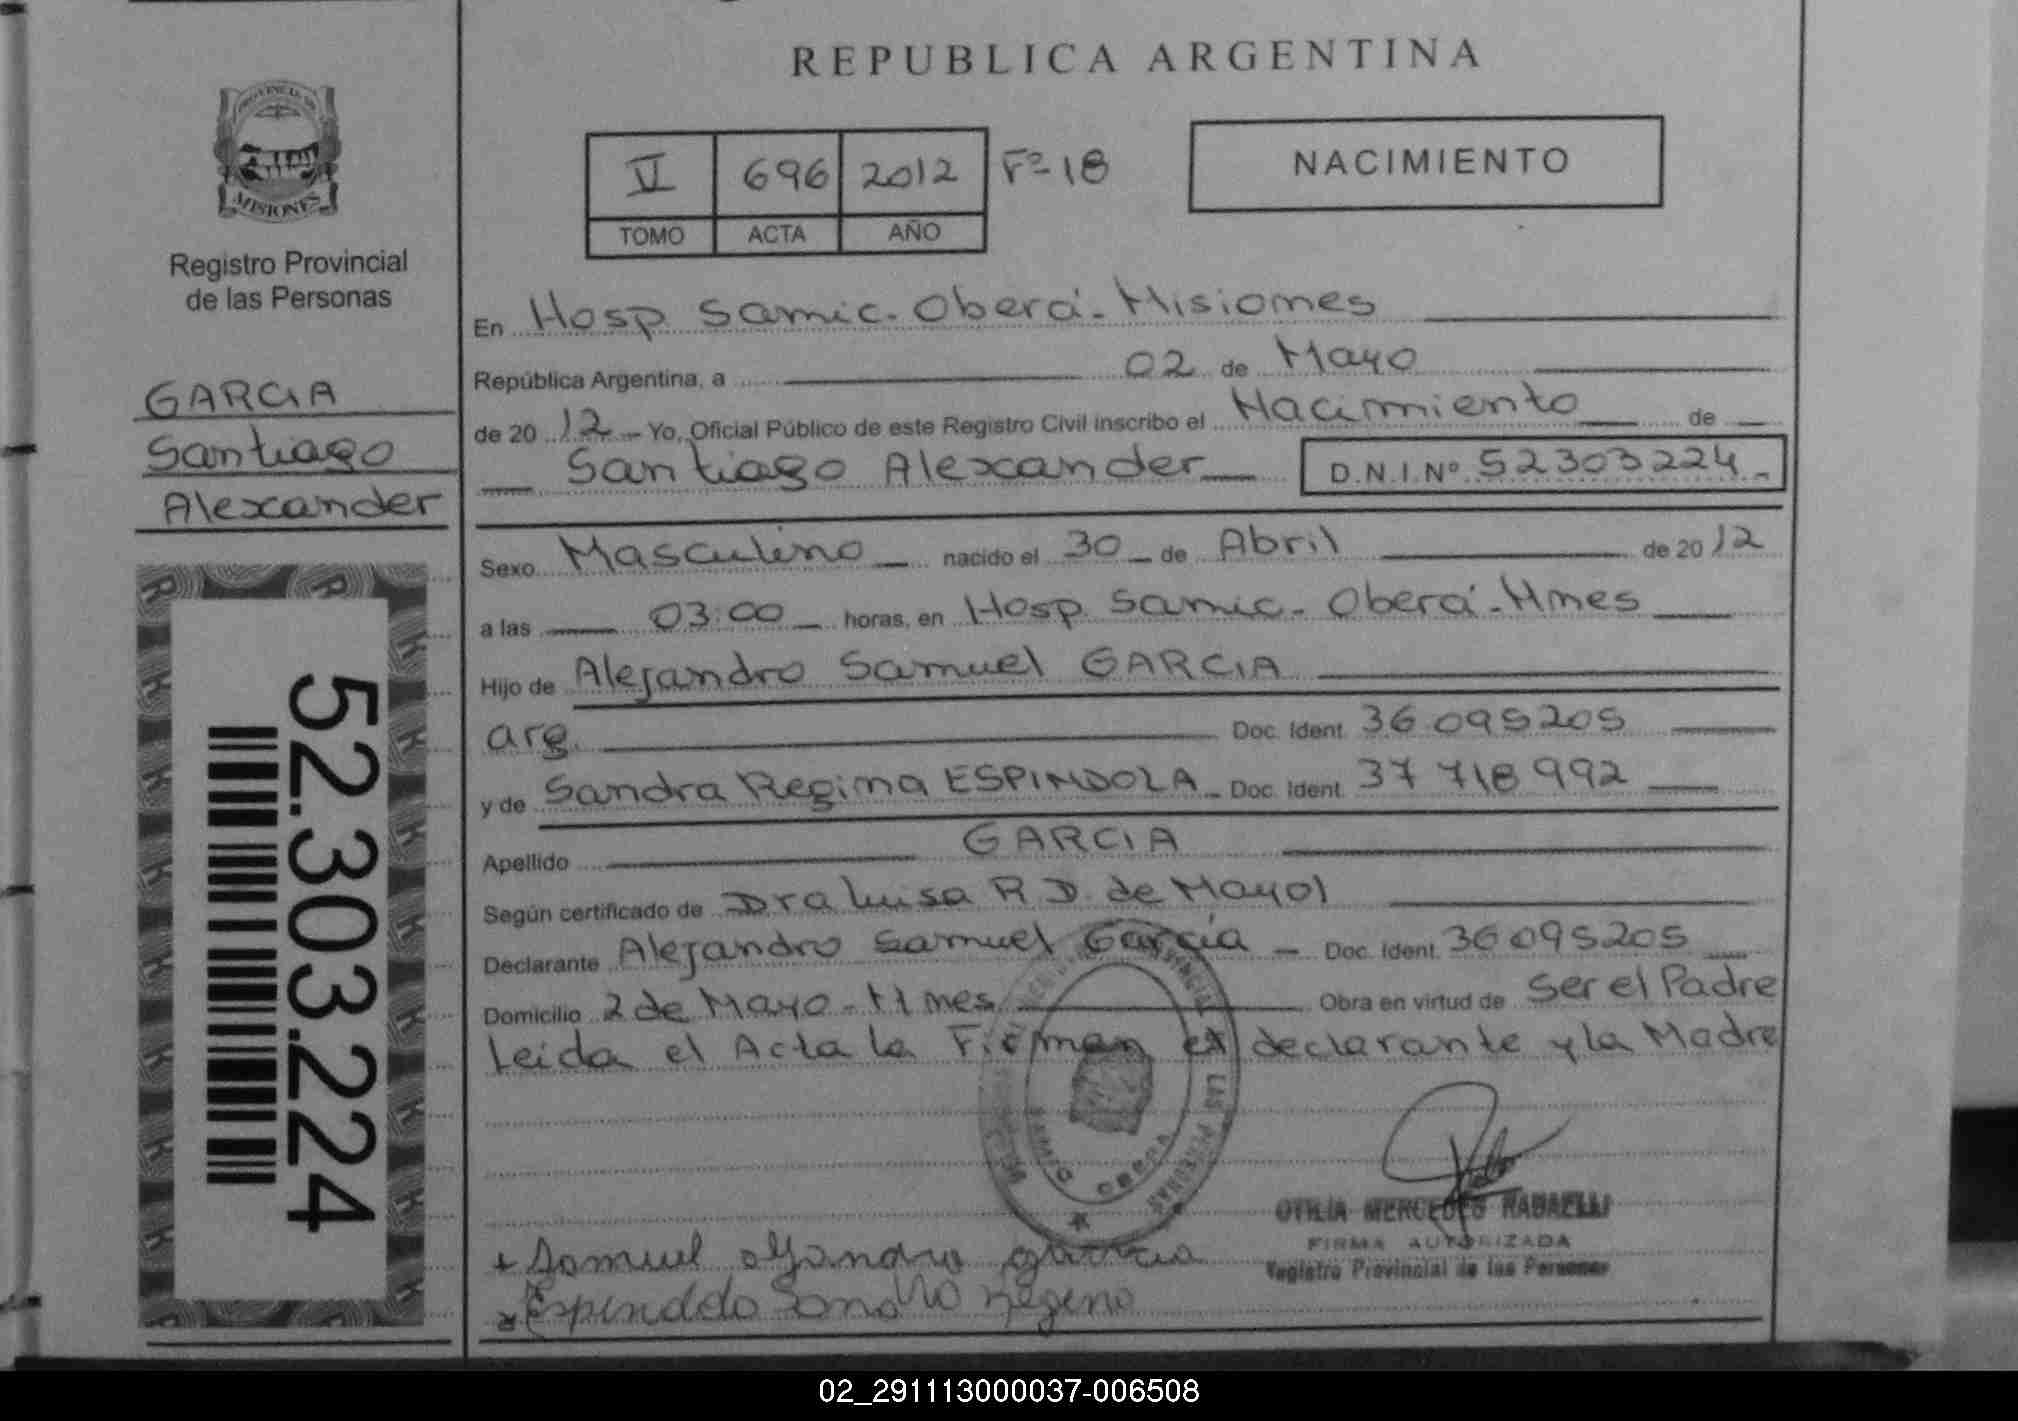 REPUBLICA ARGENTINA
PROVINCIA DE
MISIONES
Registro Provincial
de las Personas
GARCIA
Santiago
Alexander
52.303.224
VI 696 2012 Fº 18
TOMO ACTA AÑO
NACIMIENTO
En Hosp Samic. Oberá. Misiones
República Argentina, a 02 de Mayo
de 20 12 Yo, Oficial Público de este Registro Civil inscribo el Nacimiento de
Santiago Alexander D.N.I.Nº 52303224
Sexo Masculino nacido el 30 de Abril de 20 12
a las 03:00 horas, en Hosp. Samic. Oberá. Mnes
Hijo de Alejandro Samuel GARCIA
arg. Doc. Ident. 36 095205
y de Sandra Regina ESPINDOLA Doc. Ident. 37 718 992
Apellido GARCIA
Según certificado de Dra Luisa R D. de Mayol
Declarante Alejandro Samuel García Doc. Ident. 36095205
Domicilio 2 de Mayo - Mnes Obra en virtud de Ser el Padre
Leida el Acta la Firman el declarante y la Madre
OTILIA MERCEDES
FIRMA AUTORIZADA
Registro Provincial de las Personas
+ Samuel alejandro garcia
x Espindola Sandra Regina
02_291113000037-006508